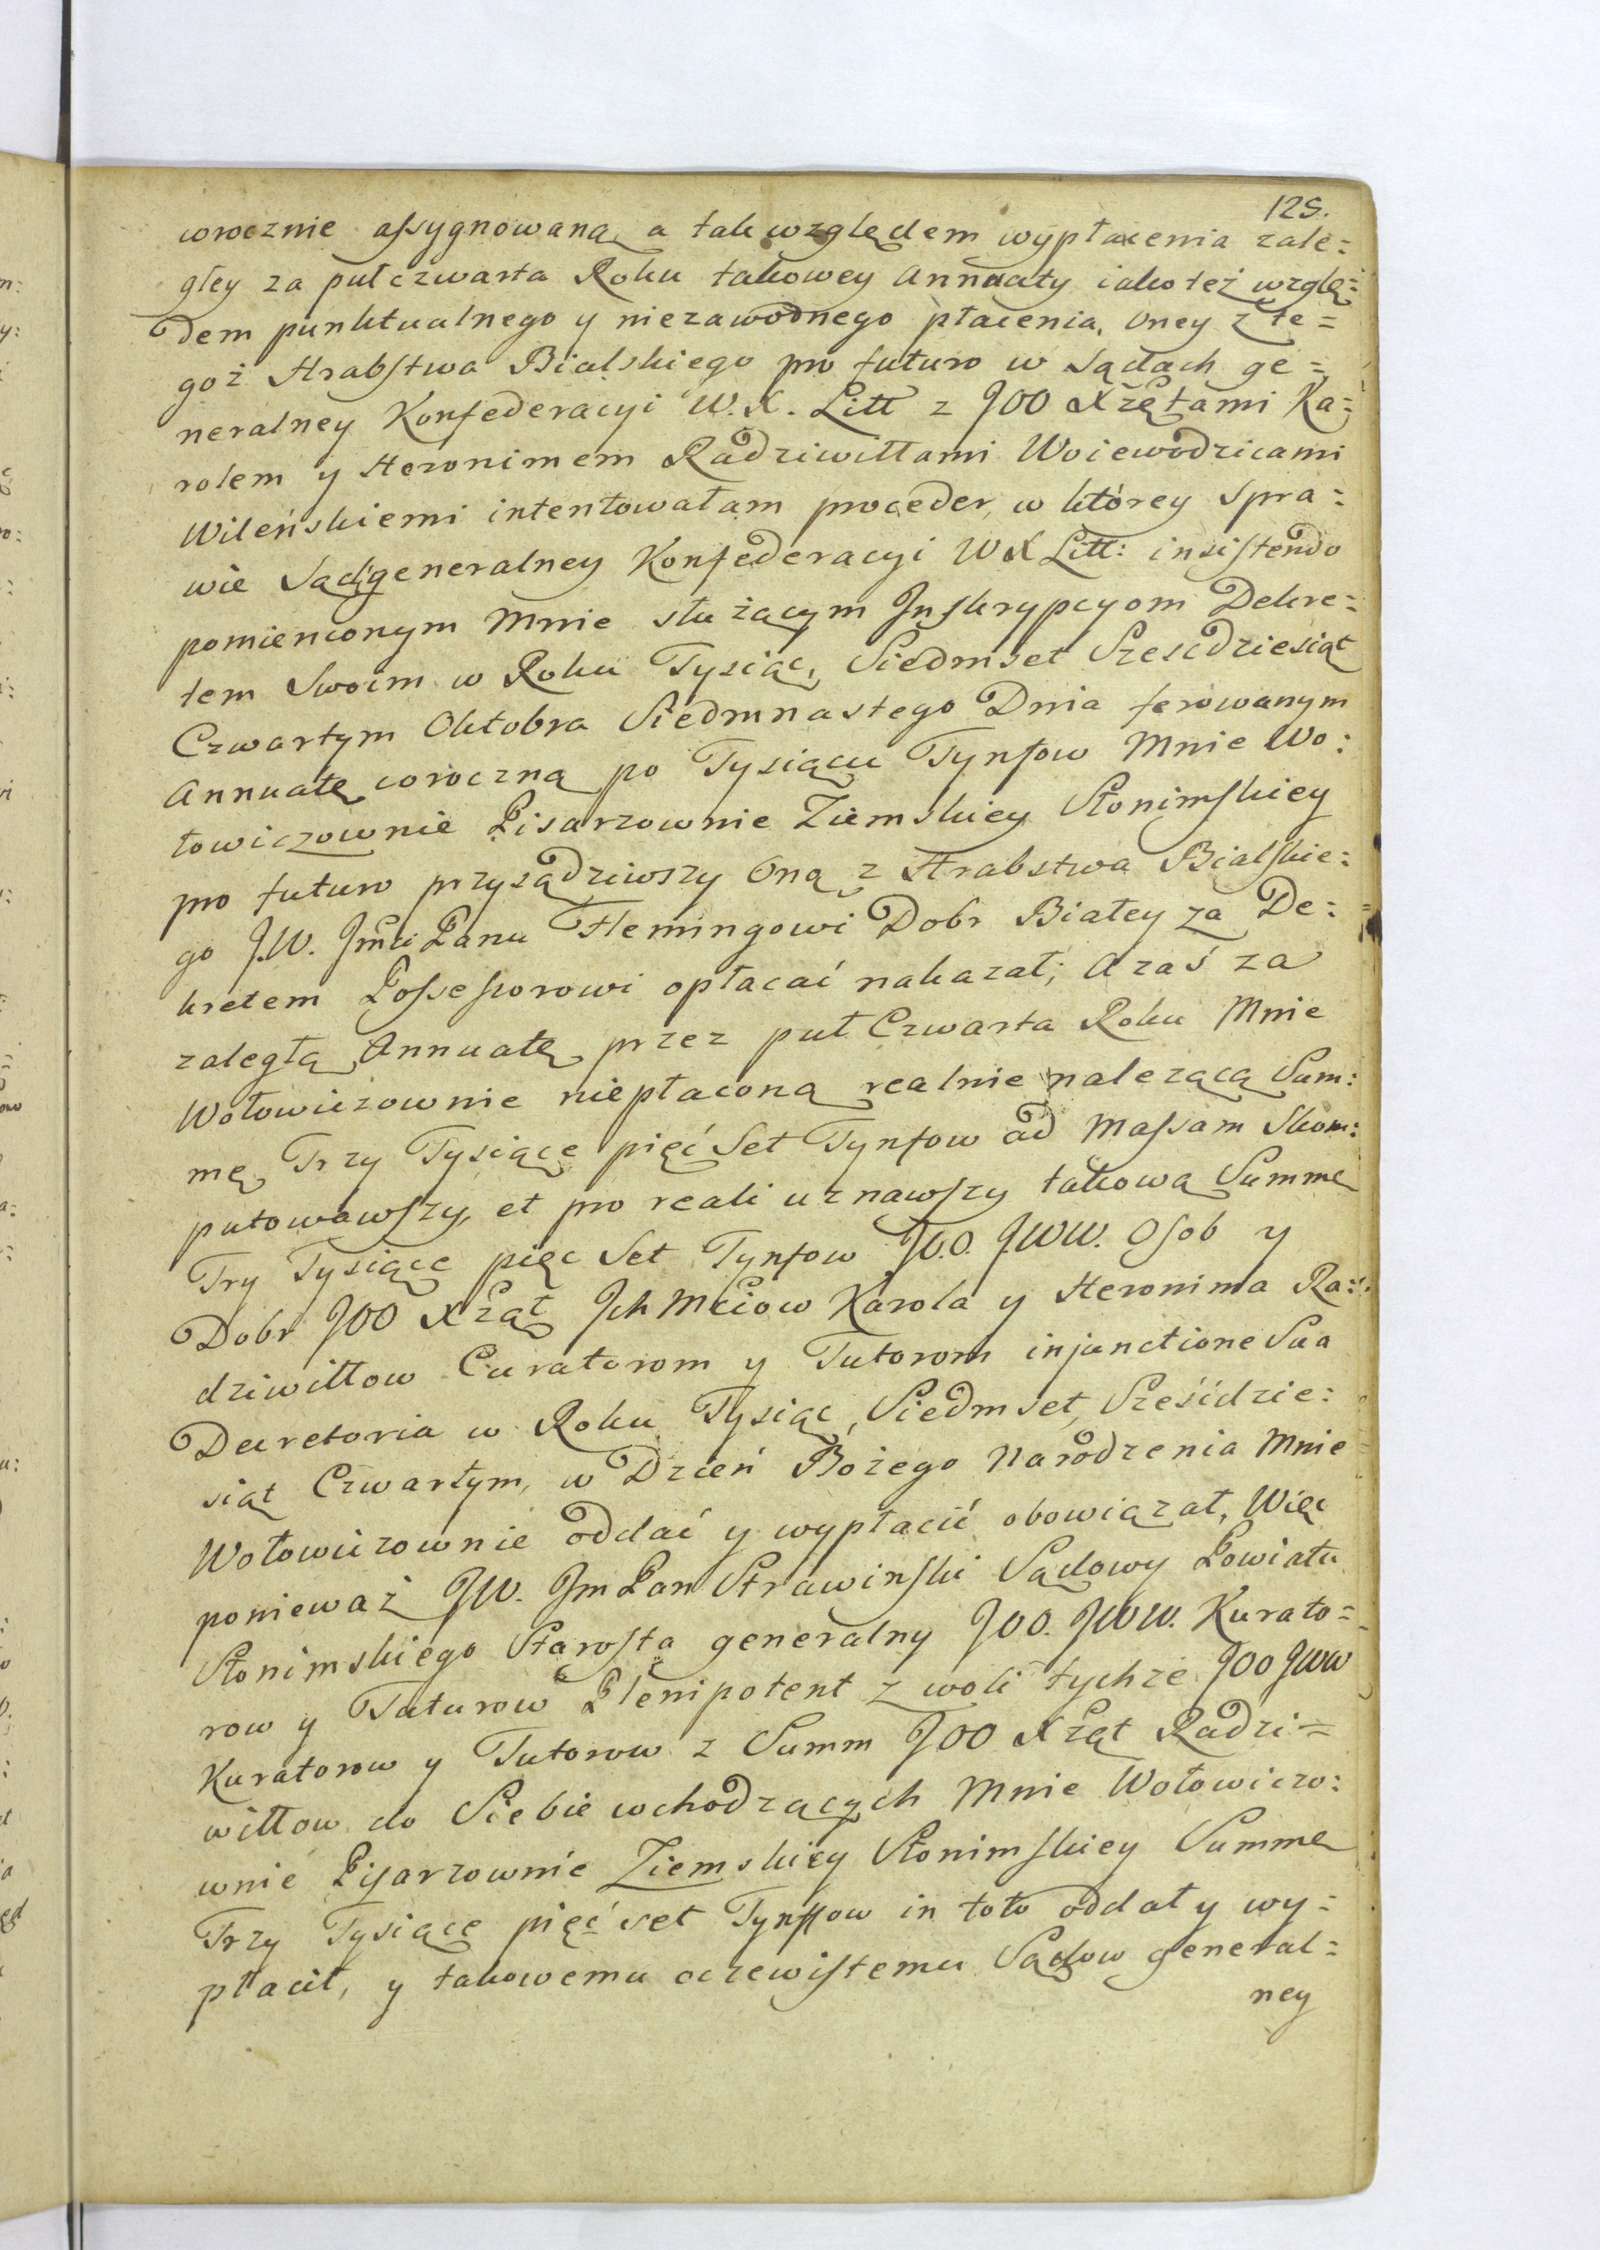 125.
corocznie assygnowaną, a tak względem wypłacenia zale=
głey za pułczwarta Roku takowey Annuaty iako też wzglę=
dem punktualnego y niezawodnego płacenia, Oney z te=
goż Hrabstwa Bialskiego pro futuro w Sądach ge=
neralney Konfederacyi W. X. Litt z JOO Xżętami Ka=
rolem y Heronimem Radziwiłłami Woiewodzicami
Wileńskiemi intentowałam proceder, w którey Spra=
wie Sąd generalney Konfederacyi WX Litt: insistendo
pomienionym Mnie służącym Inskrypcyom Dekre=
tem Swoim w Roku Tysiąc, Siedmset Szescdziesiąt
Czwartym Oktobra Siedmnastego Dnia ferowanym
Annuatę coroczną po Tysiącu Tynfow Mnie Wo:
łowiczownie Pisarzownie Ziemskiey Słonimskiey
pro futuro przysądziwszy Oną z Hrabstwa Bialskie:
go J.W. Jmci Panu Flemingowi Dobr Białey za De:
kretem Possessorowi opłacać nakazał; A zaś za
zaległą Annuatę przez puł Czwarta Roku Mnie
Wołowiczownie niepłaconą realnie nalezącą Sum:
mę Trzy Tysiące pięć Set Tynfow ad Massam Skom:
putowawszy, et pro reali uznawszy takową Summę
Try Tysiące pięc Set Tynfow JO.O. JWW. Osob y
Dobr JOO Xżąt Jch Mciow Karola y Heronima Ra:
dziwiłłow Curatorom y Tutorom injunctione Sua
Decretoria w Roku Tysiąc, Siedmset, Sześćdzie:
siąt Czwartym, w Dzień Bożego Narodzenia Mnie
Wołowiczownie oddać y wypłacić obowiązał, Więc
ponieważ JW. Jm Pan Strawinski Sądowy Powiatu
Słonimskiego Starosta generalny JOO. JWW. Kurato=
row y Tuturow Plenipotent z woli tychże JOO JWW
Kuratorow y Tutorow z Summ JOO Xżąt Radzi=
wiłłow do Siebie wchodzących Mnie Wołowiczo:
wnie Pisarzownie Ziemskiey Słonimskiey Summę
Trzy Tysiące pięć set Tynffow in toto oddał y wy=
płacił, y takowemu oczewistemu Sądow general=
ney